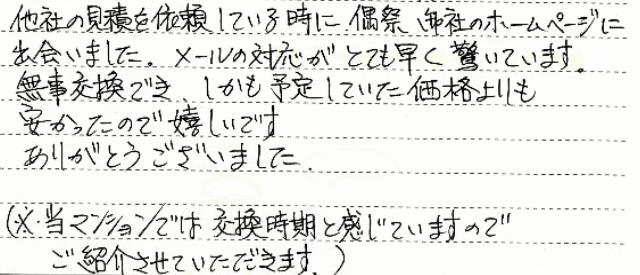 他社の見積を依頼している時に偶然、御社のホームページに
出会いました。メールの対応がとても早く驚いています。
無事交換でき、しかも予定していた価格よりも
安かったので嬉しいです
ありがとうございました。
(※当マンションでは交換時期と感じていますので
ご紹介させていただきます。)